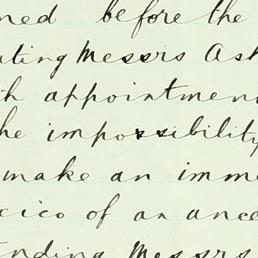 ned before the
ating Messrs Ash
h appointment
he impossibility
make an imme
cico of an ance
ending Messrs